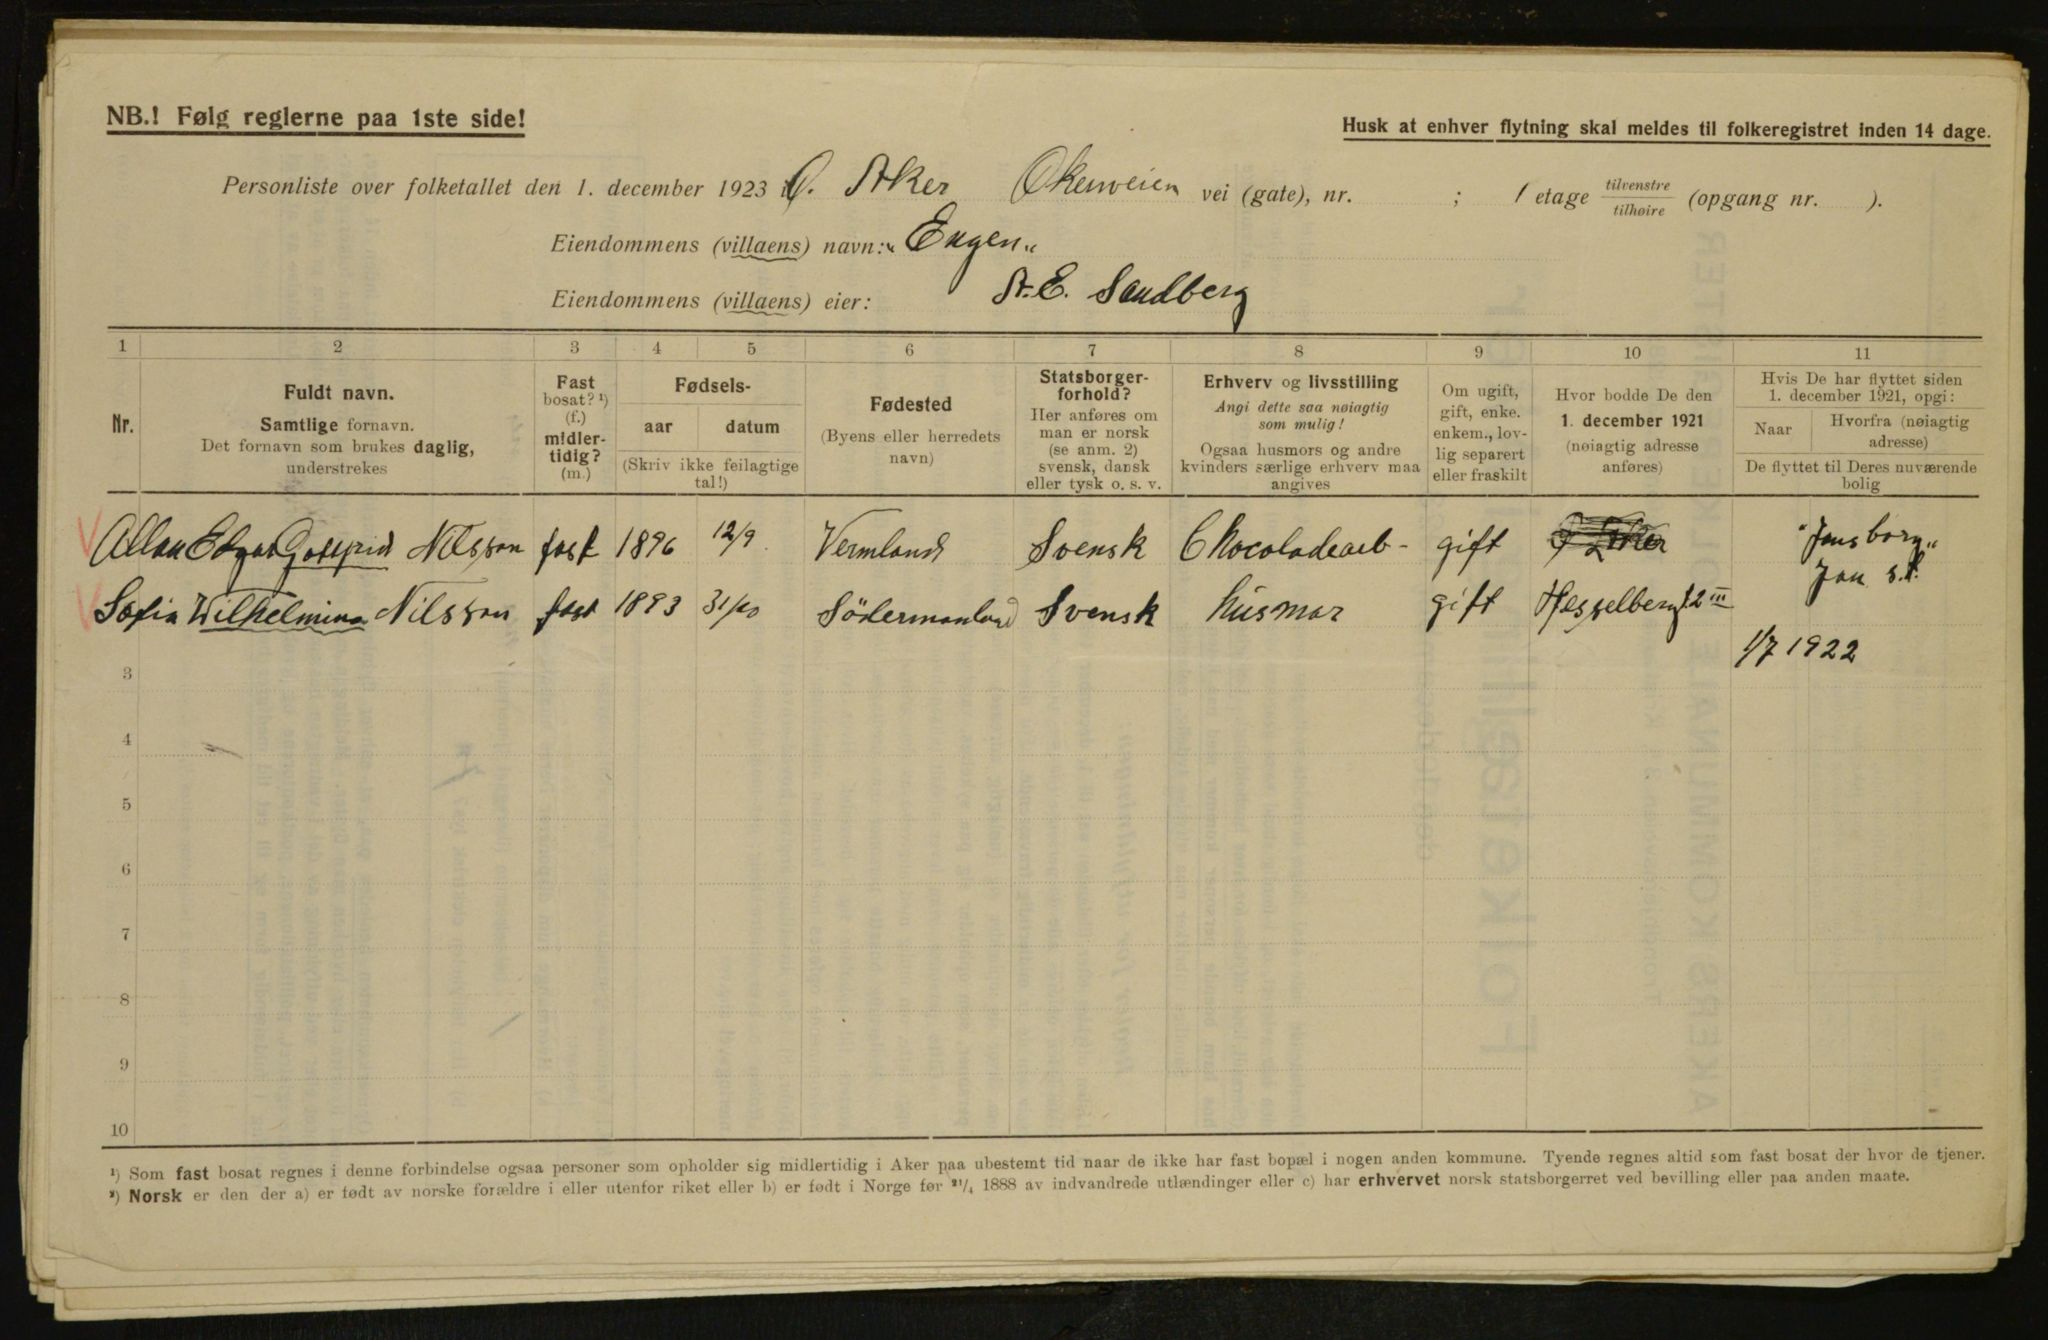 NB.! Følg reglerne paa 1ste side!
Husk at enhver flytning skal meldes til folkeregistret inden 14 dage.
Personliste over folketallet den 1. december 1923 i Ø. Aker Økernveien vei (gate), nr. ; 1 etage tilvenstre/tilhøire (opgang nr. ).
Eiendommens (villaens) navn: "Engen"
Eiendommens (villaens) eier: A. E. Sandberg
1 2 3 4 5 6 7 8 9 10 11
Nr.
Fuldt navn.
Samtlige fornavn.
Det fornavn som brukes daglig,
understrekes
Fast
bosat? ¹)
(f.)
midler-
tidig?
(m.)
Fødsels-
aar datum
(Skriv ikke feilagtige
tal!)
Fødested
(Byens eller herredets
navn)
Statsborger-
forhold?
Her anføres om
man er norsk
(se anm. 2)
svensk, dansk
eller tysk o. s. v.
Erhverv og livsstilling
Angi dette saa nøiagtig
som mulig!
Ogsaa husmors og andre
kvinders særlige erhverv maa
angives
Om ugift,
gift, enke.
enkem., lov-
lig separert
eller fraskilt
Hvor bodde De den
1. december 1921
(nøiagtig adresse
anføres)
Hvis De har flyttet siden
1. december 1921, opgi:
Naar
Hvorfra (nøiagtig
adresse)
De flyttet til Deres nuværende
bolig
Allan Edgar Gottfrid Nilsson fast 1896 12/9 Vermland Svensk Chocoladearb- gift "Jansborg"
Jan s.t.
Sofia Wilhelmina Nilsson fast 1893 31/10 Södermanland Svensk husmor gift Hesselberg 12 III
1/7 1922
3
4
5
6
7
8
9
10
¹) Som fast bosat regnes i denne forbindelse ogsaa personer som opholder sig midlertidig i Aker paa ubestemt tid naar de ikke har fast bopæl i nogen anden kommune. Tyende regnes altid som fast bosat der hvor de tjener.
²) Norsk er den der a) er født av norske forældre i eller utenfor riket eller b) er født i Norge før ²¹/₄ 1888 av indvandrede utlændinger eller c) har erhvervet norsk statsborgerret ved bevilling eller paa anden maate.